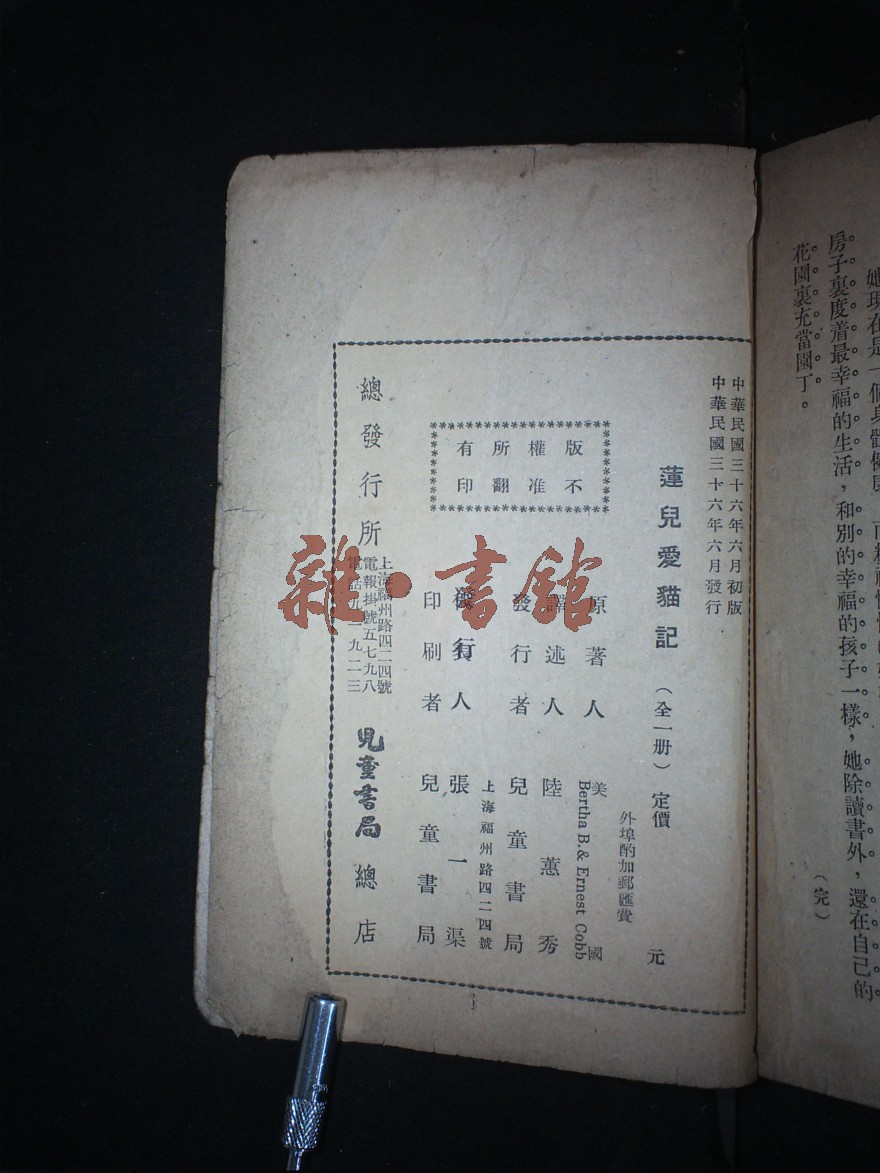 她現在是一個身體健康
房子裏度着最幸福的生活，和別的幸福的孩子一樣，她除讀書外，還在自己的
花園裏充當園丁。
（完）
中華民國三十六年六月初版
中華民國三十六年六月發行
蓮兒愛貓記
（全一册）定價 元
外埠酌加郵匯費
原著人 美國
Bertha B. & Ernest Cobb
譯述人 陸蕙秀
發行者 兒童書局
上海福州路四二四號
發行人 張一渠
印刷者 兒童書局
版權所有
不准翻印
總發行所
上海福州路四二四號
電報掛號五七九八
電話九一九二三
兒童書局 總店
雜·書館